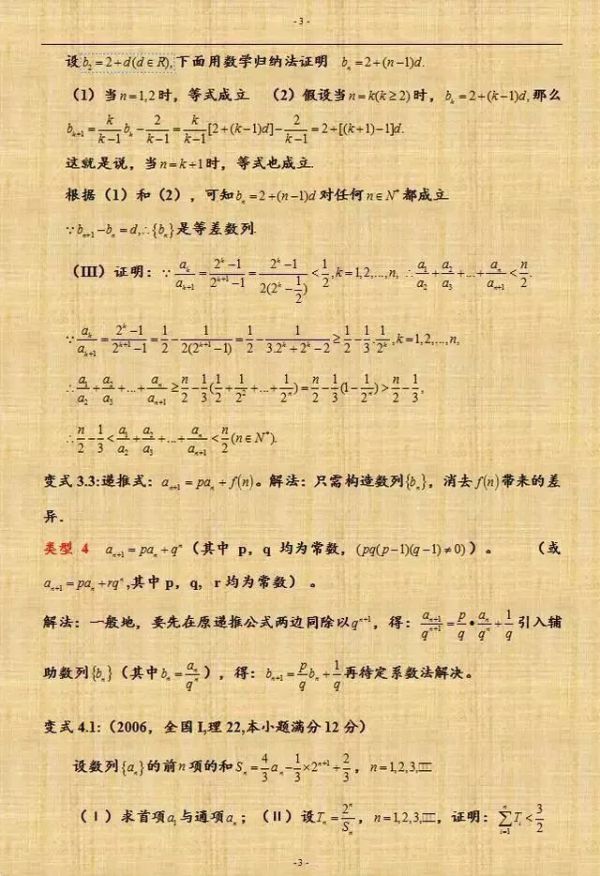 - 3 -
设b₂=2+d(d∈R),下面用数学归纳法证明 bₙ=2+(n−1)d.
（1）当n=1,2时，等式成立 （2）假设当n=k(k≥2)时，bₖ=2+(k−1)d,那么
bₖ₊₁=k/(k−1) bₖ−2/(k−1)=k/(k−1)[2+(k−1)d]−2/(k−1)=2+[(k+1)−1]d.
这就是说，当n=k+1时，等式也成立.
根据（1）和（2），可知bₙ=2+(n−1)d对任何n∈N*都成立
∵bₙ₊₁−bₙ=d,∴{bₙ}是等差数列.
（III）证明：∵aₖ/aₖ₊₁=(2^k−1)/(2^(k+1)−1)=(2^k−1)/(2(2^k−1/2))<1/2,k=1,2,...,n, ∴a₁/a₂+a₂/a₃+...+aₙ/aₙ₊₁<n/2.
∵aₖ/aₖ₊₁=(2^k−1)/(2^(k+1)−1)=1/2−1/(2(2^(k+1)−1))=1/2−1/(3.2^k+2^k−2)≥1/2−1/3.1/2^k,k=1,2,...,n,
∴a₁/a₂+a₂/a₃+...+aₙ/aₙ₊₁≥n/2−1/3(1/2+1/2²+...+1/2^n)=n/2−1/3(1−1/2^n)>n/2−1/3,
∴n/2−1/3<a₁/a₂+a₂/a₃+...+aₙ/aₙ₊₁<n/2(n∈N*).
变式3.3:递推式：aₙ₊₁=paₙ+f(n)。解法：只需构造数列{bₙ}，消去f(n)带来的差
异.
类型 4 aₙ₊₁=paₙ+q^n（其中 p，q 均为常数，(pq(p−1)(q−1)≠0)）。 （或
aₙ₊₁=paₙ+rq^n,其中 p，q, r 均为常数）。
解法：一般地，要先在原递推公式两边同除以q^(n+1)，得：aₙ₊₁/q^(n+1)=p/q•aₙ/q^n+1/q引入辅
助数列{bₙ}（其中bₙ=aₙ/q^n），得：bₙ₊₁=p/q bₙ+1/q再待定系数法解决。
变式 4.1:（2006，全国 I,理 22,本小题满分 12 分）
设数列{aₙ}的前n项的和Sₙ=4/3 aₙ−1/3×2^(n+1)+2/3，n=1,2,3,□□
（Ⅰ）求首项a₁与通项aₙ；（II）设Tₙ=2^n/Sₙ，n=1,2,3,□□，证明：∑(i=1→n)Tᵢ<3/2
- 3 -